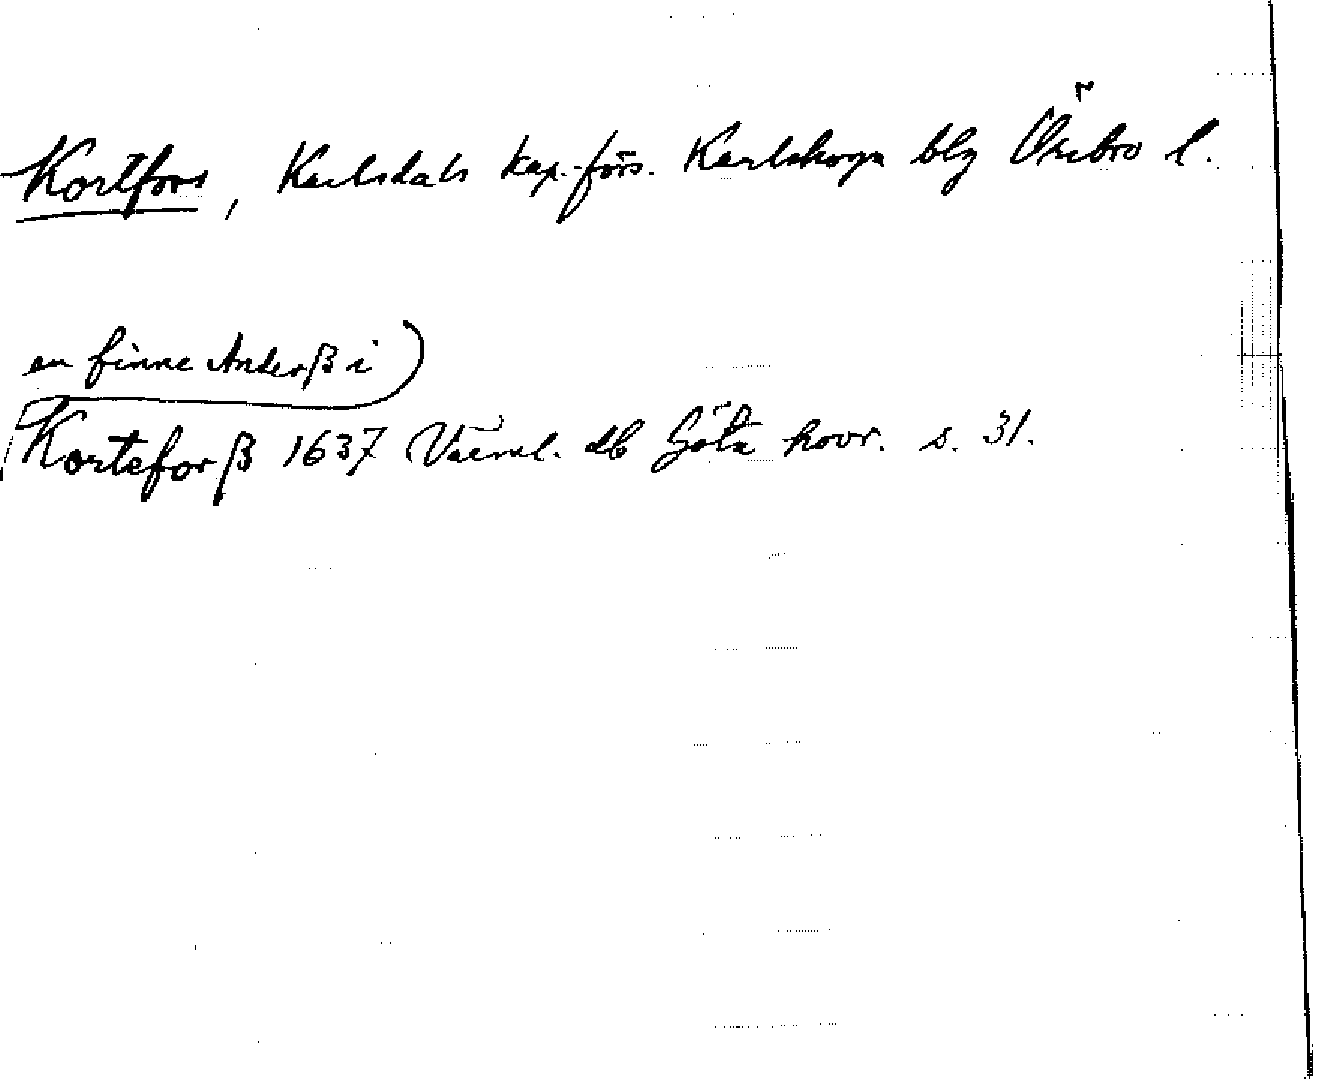 Kortfors, Karlsdals kap.-förs. Karlskoga blg Örebro l.
en finne Anderß i)
Korteforß 1637 Värml. db Göta hovr. s. 31.